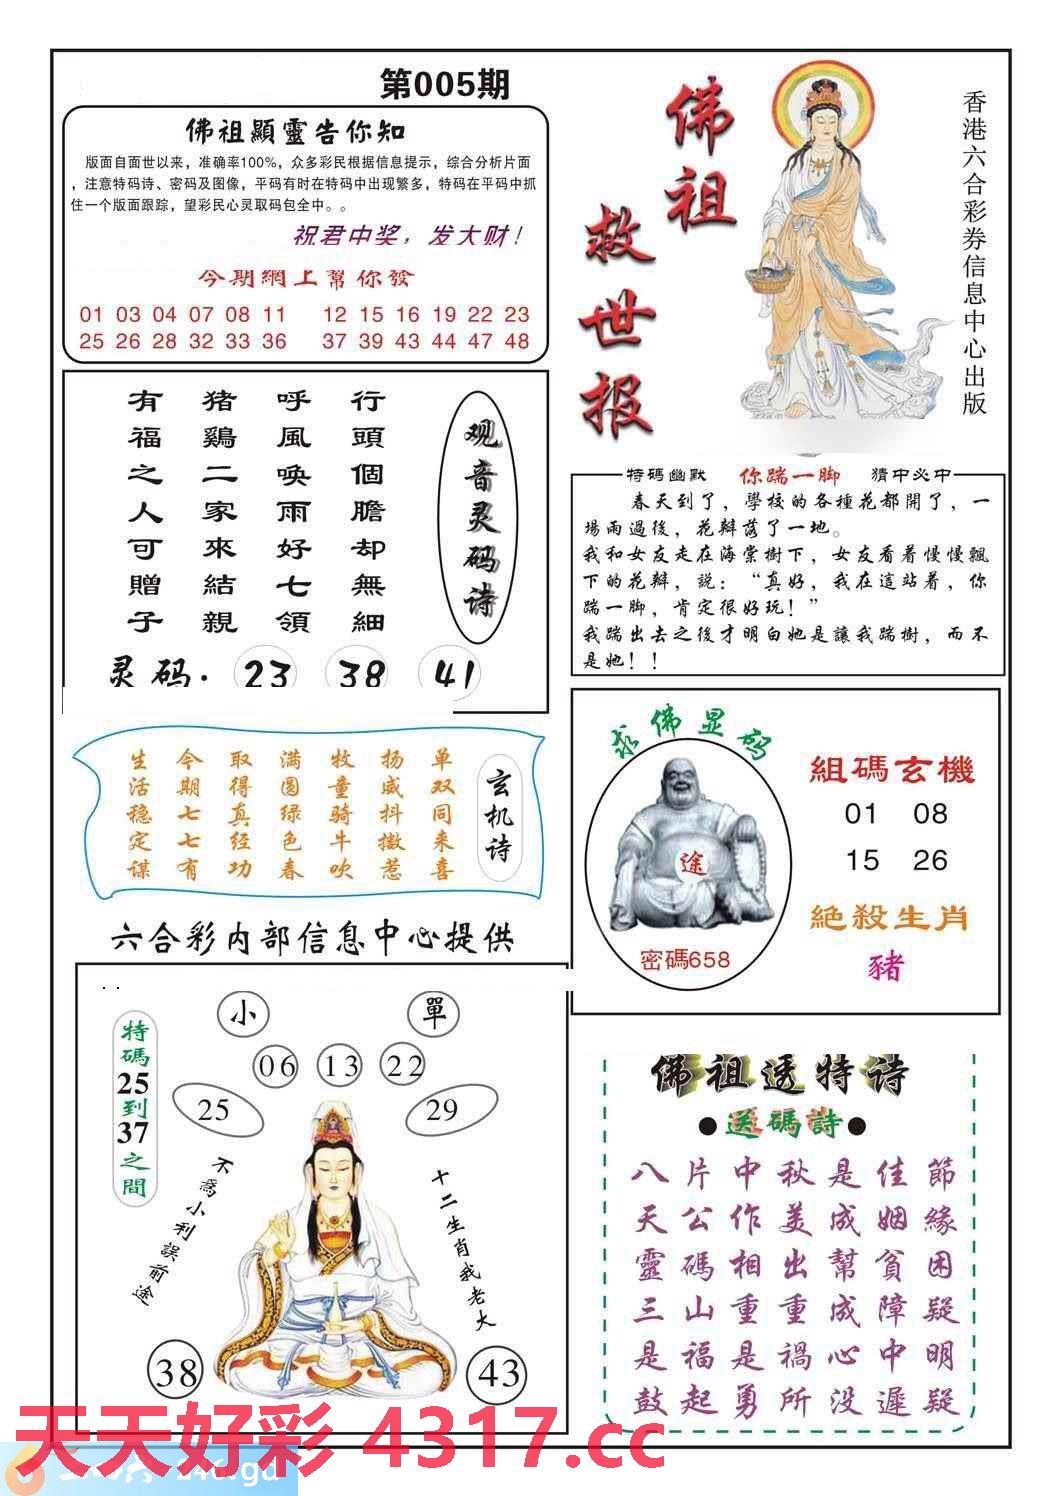 第005期
佛祖顯靈告你知
版面自面世以来，准确率100%，众多彩民根据信息提示，综合分析片面
，注意特码诗、密码及图像，平码有时在特码中出现繁多，特码在平码中抓
住一个版面跟踪，望彩民心灵取码包全中。。
祝君中奖，发大财！
今期網上幫你發
01 03 04 07 08 11 12 15 16 19 22 23
25 26 28 32 33 36 37 39 43 44 47 48
佛祖
救世报
香港六合彩券信息中心出版
观音灵码诗
行頭個膽却無細
呼風喚雨好七領
猪鷄二家來結親
有福之人可贈子
灵码. 23 38 41
特碼幽默 你踹一脚 猜中必中
春天到了，學校的各種花都開了，一
場雨過後，花辮落了一地。
我和女友走在海棠樹下，女友看着慢慢飄
下的花辮，説：“真好，我在這站着，你
踹一脚，肯定很好玩！”
我踹出去之後才明白她是讓我踹樹，而不
是她！！
玄机诗
单双同来喜
扬威抖擞惹
牧童骑牛吹
满圆绿色春
取得真经功
今期七七有
生活稳定谋
求佛显码
途
密碼658
組碼玄機
01 08
15 26
絕殺生肖
豬
六合彩内部信息中心提供
小
單
06 13 22
25
29
特碼25到37之間
不爲小利誤前途
十二生肖我老大
38
43
佛祖透特诗
●送碼詩●
八片中秋是佳節
天公作美成姻緣
靈碼相出幫貧困
三山重重成障疑
是福是禍心中明
鼓起勇所没遲疑
天天好彩 4317.cc
246.gd